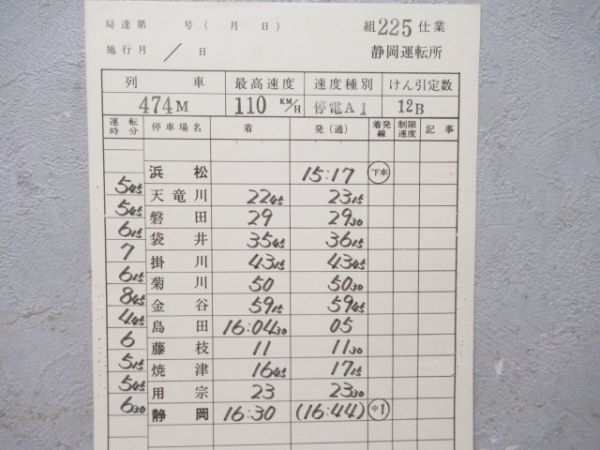 局達第 号(月 日) 組225仕業
施行月 / 日 静岡運転所
列車 最高速度 速度種別 けん引定数
474M 110 KM/H 停電A1 12B
運転時分 停車場名 着 発(通) 着発線 制限速度 記事
浜松 15:17 下本
5 45
天竜川 22 45 23 15
5 45
磐田 29 29 30
6 15
袋井 35 45 36 15
7
掛川 43 15 43 45
6 15
菊川 50 50 30
8 45
金谷 59 15 59 45
4 45
島田 16:04 30 05
6
藤枝 11 11 30
5 15
焼津 16 45 17 15
5 45
用宗 23 23 30
6 30
静岡 16:30 (16:44) 中1